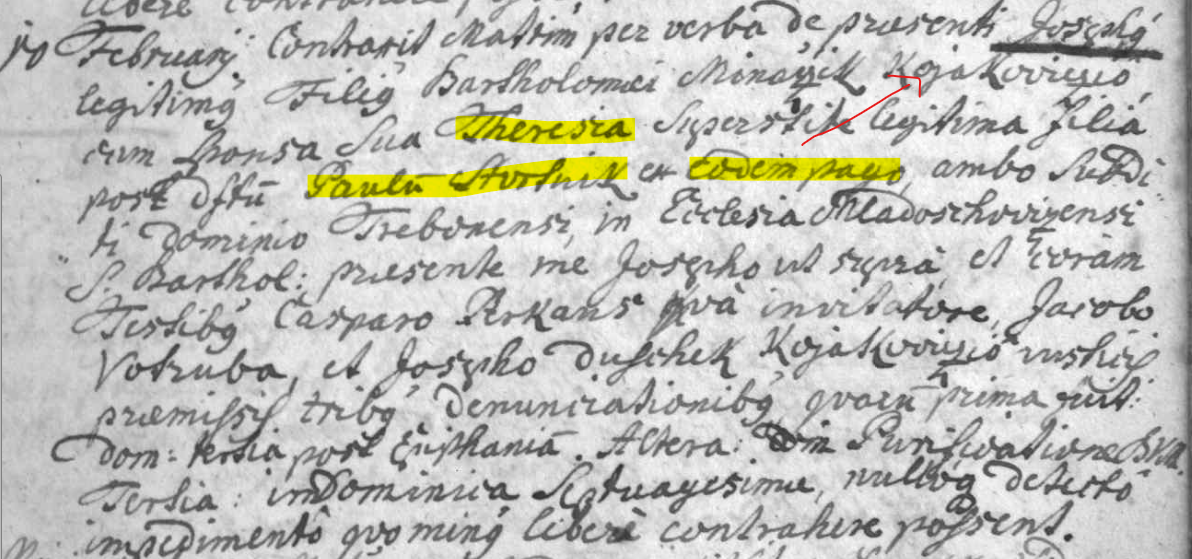 libere contrahere
10 February. Contraxit Matrim per verba de praesenti Josephg
legitimg Filig Bartholomaei Minařzik Kojakovicziô,
cum sponsa sua Theresia superstite legitima Filia
post dftū Paulū Stortnik ex eodem pago, ambo subdi
ti Dominio Trebonensi, in Ecclesia Mladoschovizensi
S. Barthol: praesente me Josepho ut supra, et Coram
Testibg Casparo Perkans quà invitatore, Jacobo
Votruba, et Josepho Duschek Kojakovicziô rusticis
praemissis tribg denunciationibg quarū prima fuit
Dom: tertia post Epiphaniā. Altera: Purificatione B.V.M.
Tertia: in Dominica Septuagesimae, nullôg detectô
impedimentô quo ming liberè contrahere possent.